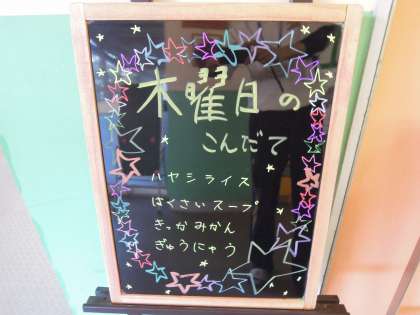 木曜日の
こんだて
ハヤシライス
はくさいスープ
きっかみかん
ぎゅうにゅう